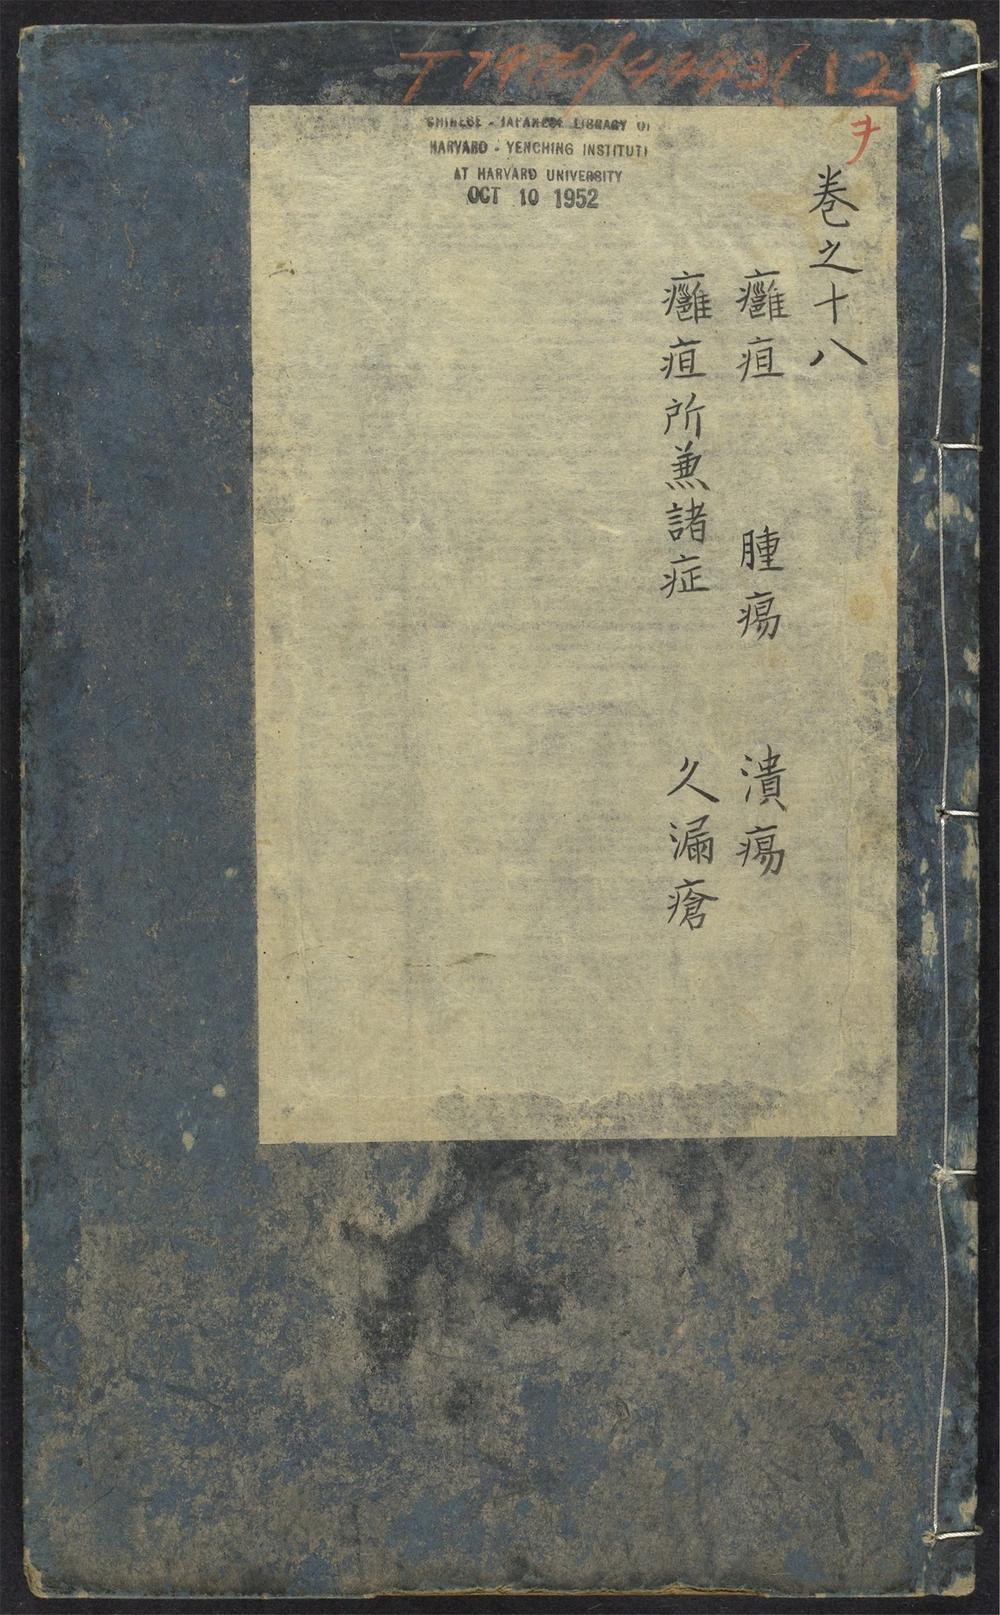 T7980/4443(12)
CHINESE - JAPANESE LIBRARY OF
HARVARD - YENCHING INSTITUTE
AT HARVARD UNIVERSITY
OCT 10 1952
ヲ
巻之十八
癰疽 腫瘍 潰瘍
癰疽所兼諸症 久漏瘡